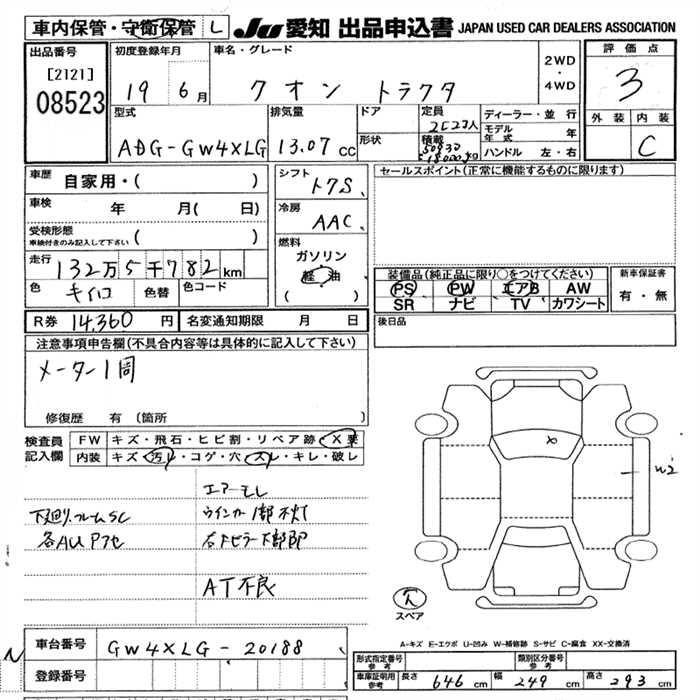 車内保管・守衛保管 L JU 愛知 出品申込書 JAPAN USED CAR DEALERS ASSOCIATION
出品番号 初度登録年月 車名・グレード 2WD・4WD 評価点
[2121] 08523 19 6月 クオン トラクタ 3
型式 排気量 ドア 定員 ディーラー・並行 外装 内装
ADG-GW4XLG 13.07cc 形状 積載 モデル年式 年 C
ハンドル 左・右
車歴 自家用・( ) シフト ト7S セールスポイント(正常に機能するものに限ります)
車検 年 月( 日) 冷房 AAC
受検形態 車検付きのみ記入して下さい ( 燃料
走行 132万5千782km ガソリン 軽油 ( )
装備品(純正品に限り○をつけてください) 新車保証書
PS PW エアB AW 有・無
色 キイロ 色替 色コード SR ナビ TV カワシート
R券 14,360円 名変通知期限 月 日 後日品
注意事項申告欄(不具合内容等は具体的に記入して下さい)
メーター1回
修復歴 有 (箇所 )
検査員記入欄 FW キズ・飛石・ヒビ割・リペア跡・X要
内装 キズ・汚れ・コゲ・穴・スレ・キレ・破レ
W2
エアーモレ
下廻り.フレームSC ウインカー1部不灯
各AUP7セ
AT不良
スペア
A-キズ E-エクボ U-凹み W-補修跡 S-サビ C-腐食 XX-交換済
車台番号 GW4XLG-20188
登録番号
形式指定番号 参考 類別区分番号 参考
車庫証明用 参考 長さ 646cm 幅 249cm 高さ 293cm